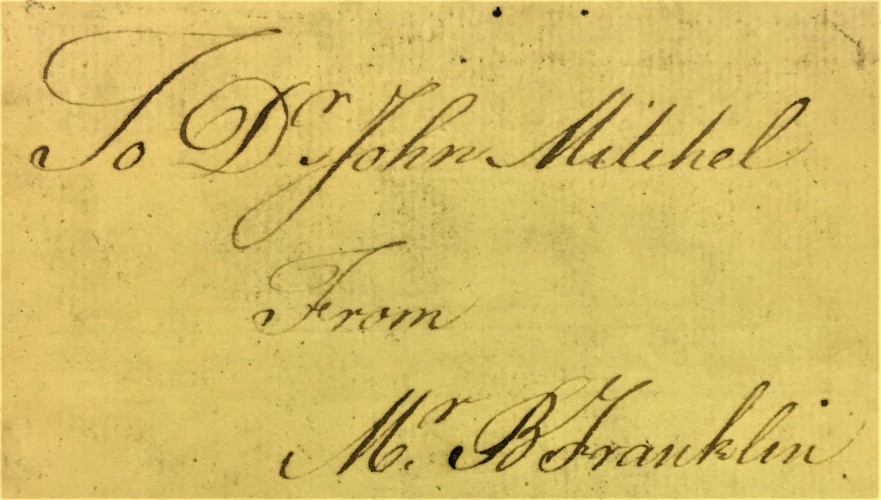 To Dr. John Mitchel
From
Mr. B Franklin